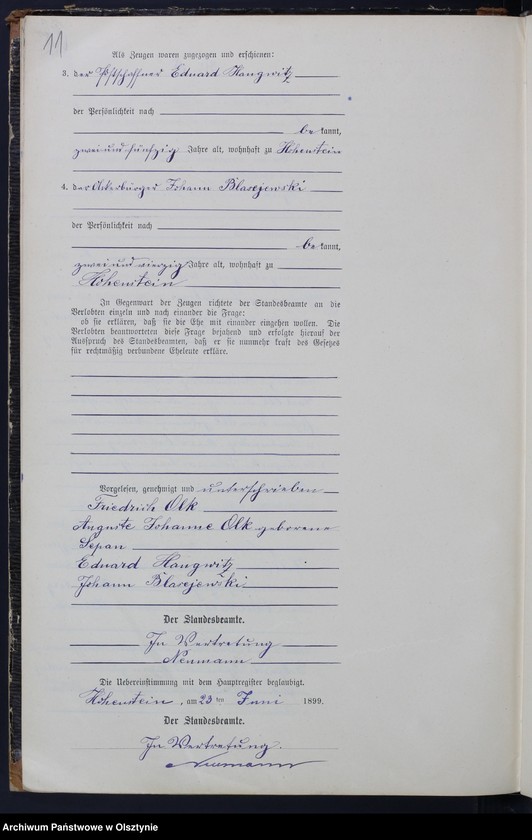 11
Als Zeugen waren zugezogen und erschienen:
3. der Postschaffner Eduard Haugwitz
der Persönlichkeit nach
bekannt,
zweiundfünfzig Jahre alt, wohnhaft zu Hohenstein
4. der Ackerbürger Johann Blasejewski
der Persönlichkeit nach
bekannt,
zweiundvierzig Jahre alt, wohnhaft zu
Hohenstein
In Gegenwart der Zeugen richtete der Standesbeamte an die
Verlobten einzeln und nach einander die Frage:
ob sie erklären, daß sie die Ehe mit einander eingehen wollen. Die
Verlobten beantworteten diese Frage bejahend und erfolgte hierauf der
Ausspruch des Standesbeamten, daß er sie nunmehr kraft des Gesetzes
für rechtmäßig verbundene Eheleute erkläre.
Vorgelesen, genehmigt und unterschrieben
Friedrich Olk
Auguste Johanne Olk geborene
Sepan
Eduard Haugwitz
Johann Blasejewski
Der Standesbeamte.
In Vertretung
Neumann
Die Uebereinstimmung mit dem Hauptregister beglaubigt.
Hohenstein, am 23ten Juni 1899.
Der Standesbeamte.
In Vertretung.
Neumann
Archiwum Państwowe w Olsztynie